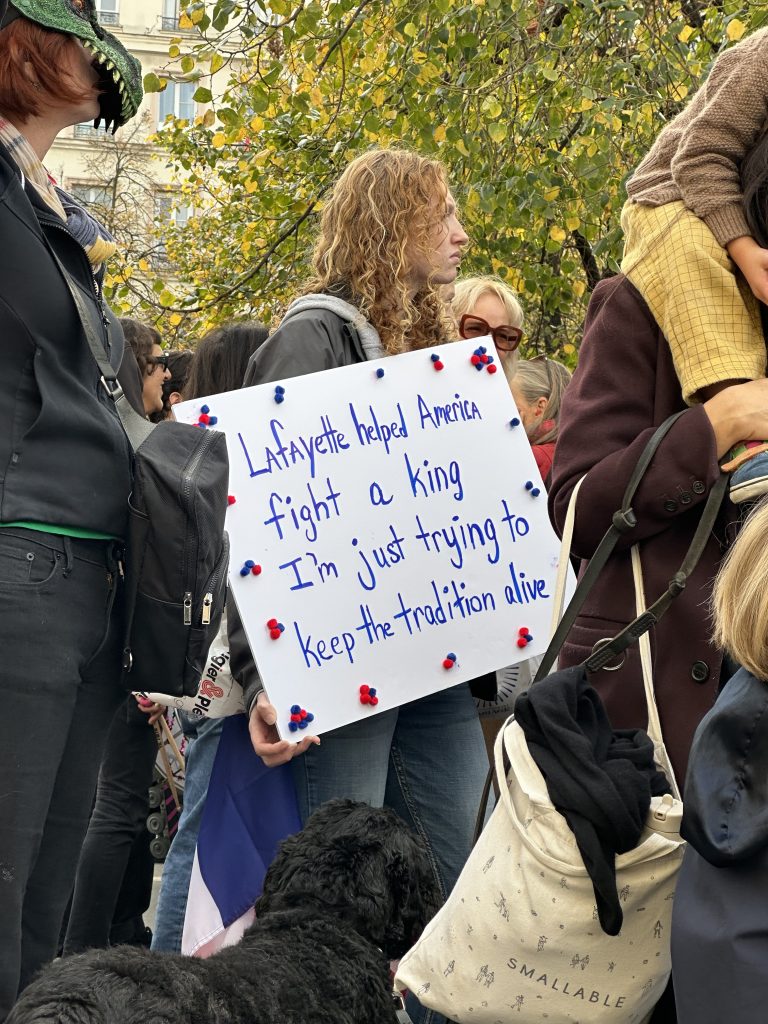 Lafayette helped America
fight a king
I'm just trying to
keep the tradition alive
SMALLABLE